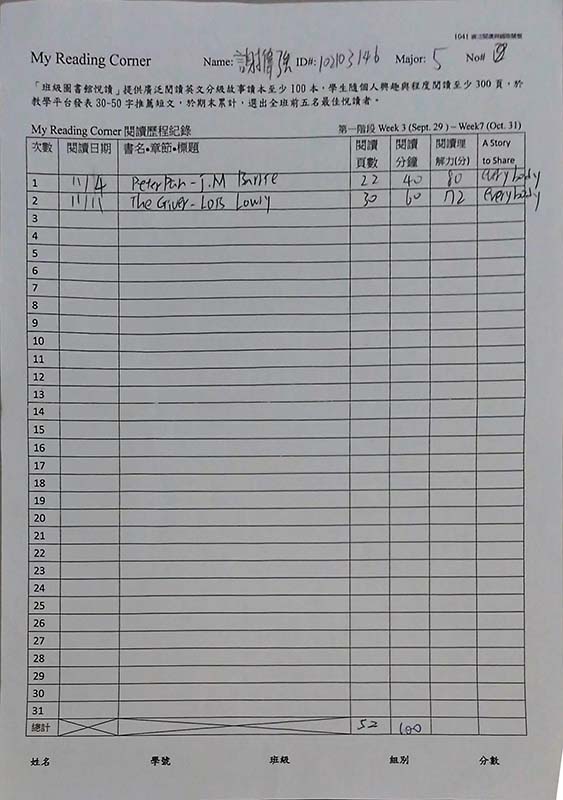 1041
My Reading Corner Name: 謝偉強 ID#: 102103146 Major: 5 No#
「班級圖書館悅讀」提供廣泛閱讀英文分級故事讀本至少 100 本，學生隨個人興趣與程度閱讀至少 300 頁，於
教學平台發表 30-50 字推薦短文，於期末累計，選出全班前五名最佳悅讀者。
My Reading Corner 閱讀歷程紀錄 第一階段 Week 3 (Sept. 29 ) – Week7 (Oct. 31)
次數 閱讀日期 書名•章節•標題 閱讀頁數 閱讀分鐘 閱讀理解力(分) A Story to Share
1 11/4 Peter Pan - J.M 22 40 80 everybody
2 11/11 The Giver - Lois Lowry 30 60 72 everybody
3
4
5
6
7
8
9
10
11
12
13
14
15
16
17
18
19
20
21
22
23
24
25
26
27
28
29
30
31
總計 52 100
姓名 學號 班級 組別 分數